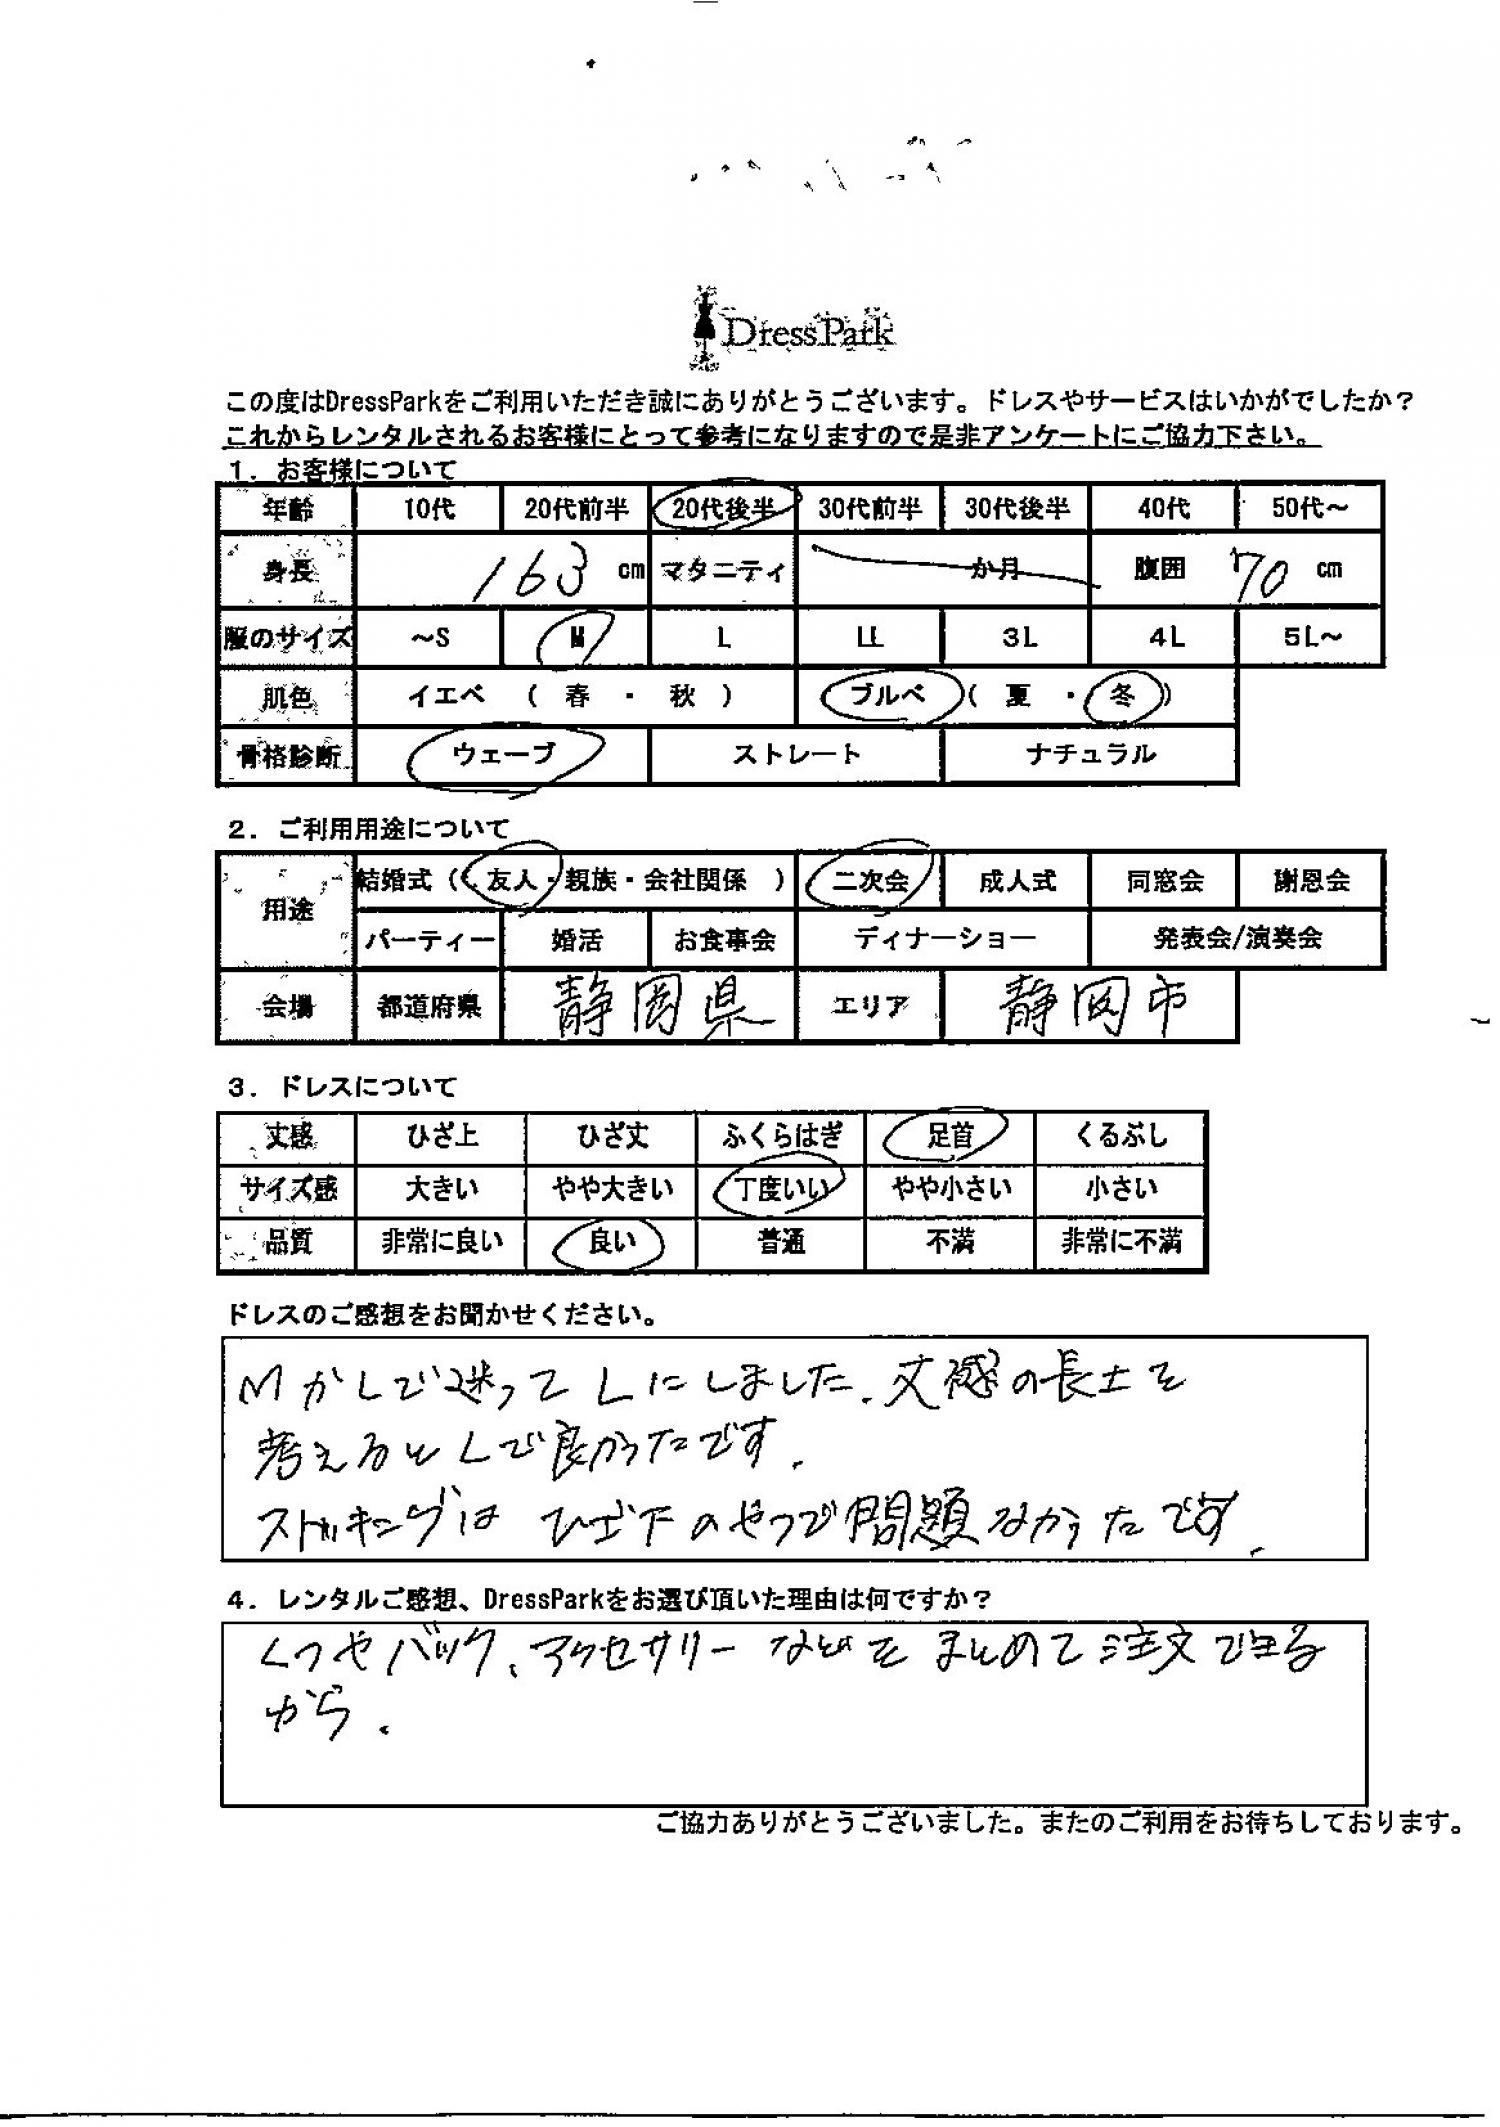 DressPark
この度はDressParkをご利用いただき誠にありがとうございます。ドレスやサービスはいかがでしたか？
これからレンタルされるお客様にとって参考になりますので是非アンケートにご協力下さい。
1. お客様について
年齢 10代 20代前半 20代後半 30代前半 30代後半 40代 50代～
身長 163 cm マタニティ か月 腹囲 70 cm
服のサイズ ～S M L LL 3L 4L 5L～
肌色 イエベ （ 春 ・ 秋 ） ブルベ （ 夏 ・ 冬 ）
骨格診断 ウェーブ ストレート ナチュラル
2. ご利用用途について
用途 結婚式（ 友人・親族・会社関係 ） 二次会 成人式 同窓会 謝恩会
パーティー 婚活 お食事会 ディナーショー 発表会/演奏会
会場 都道府県 静岡県 エリア 静岡市
3. ドレスについて
丈感 ひざ上 ひざ丈 ふくらはぎ 足首 くるぶし
サイズ感 大きい やや大きい 丁度いい やや小さい 小さい
品質 非常に良い 良い 普通 不満 非常に不満
ドレスのご感想をお聞かせください。
MかLで迷ってLにしました.丈感の長さを
考えるとLで良かったです.
ストッキングはひざ下のやつで問題なかったです.
4. レンタルご感想、DressParkをお選び頂いた理由は何ですか？
くつやバック、アクセサリーなどをまとめて注文できる
から.
ご協力ありがとうございました。またのご利用をお待ちしております。